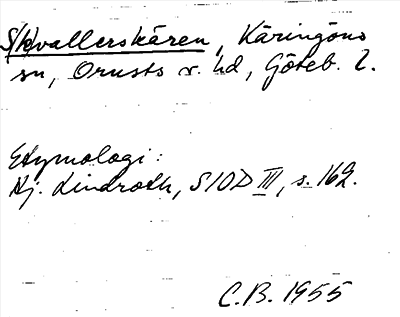 S(k)vallerskären, Käringöns
sn, Orusts v. hd, Göteb. l.
Etymologi:
Hj. Lindroth, SIOD III, s. 162.
C.B. 1955